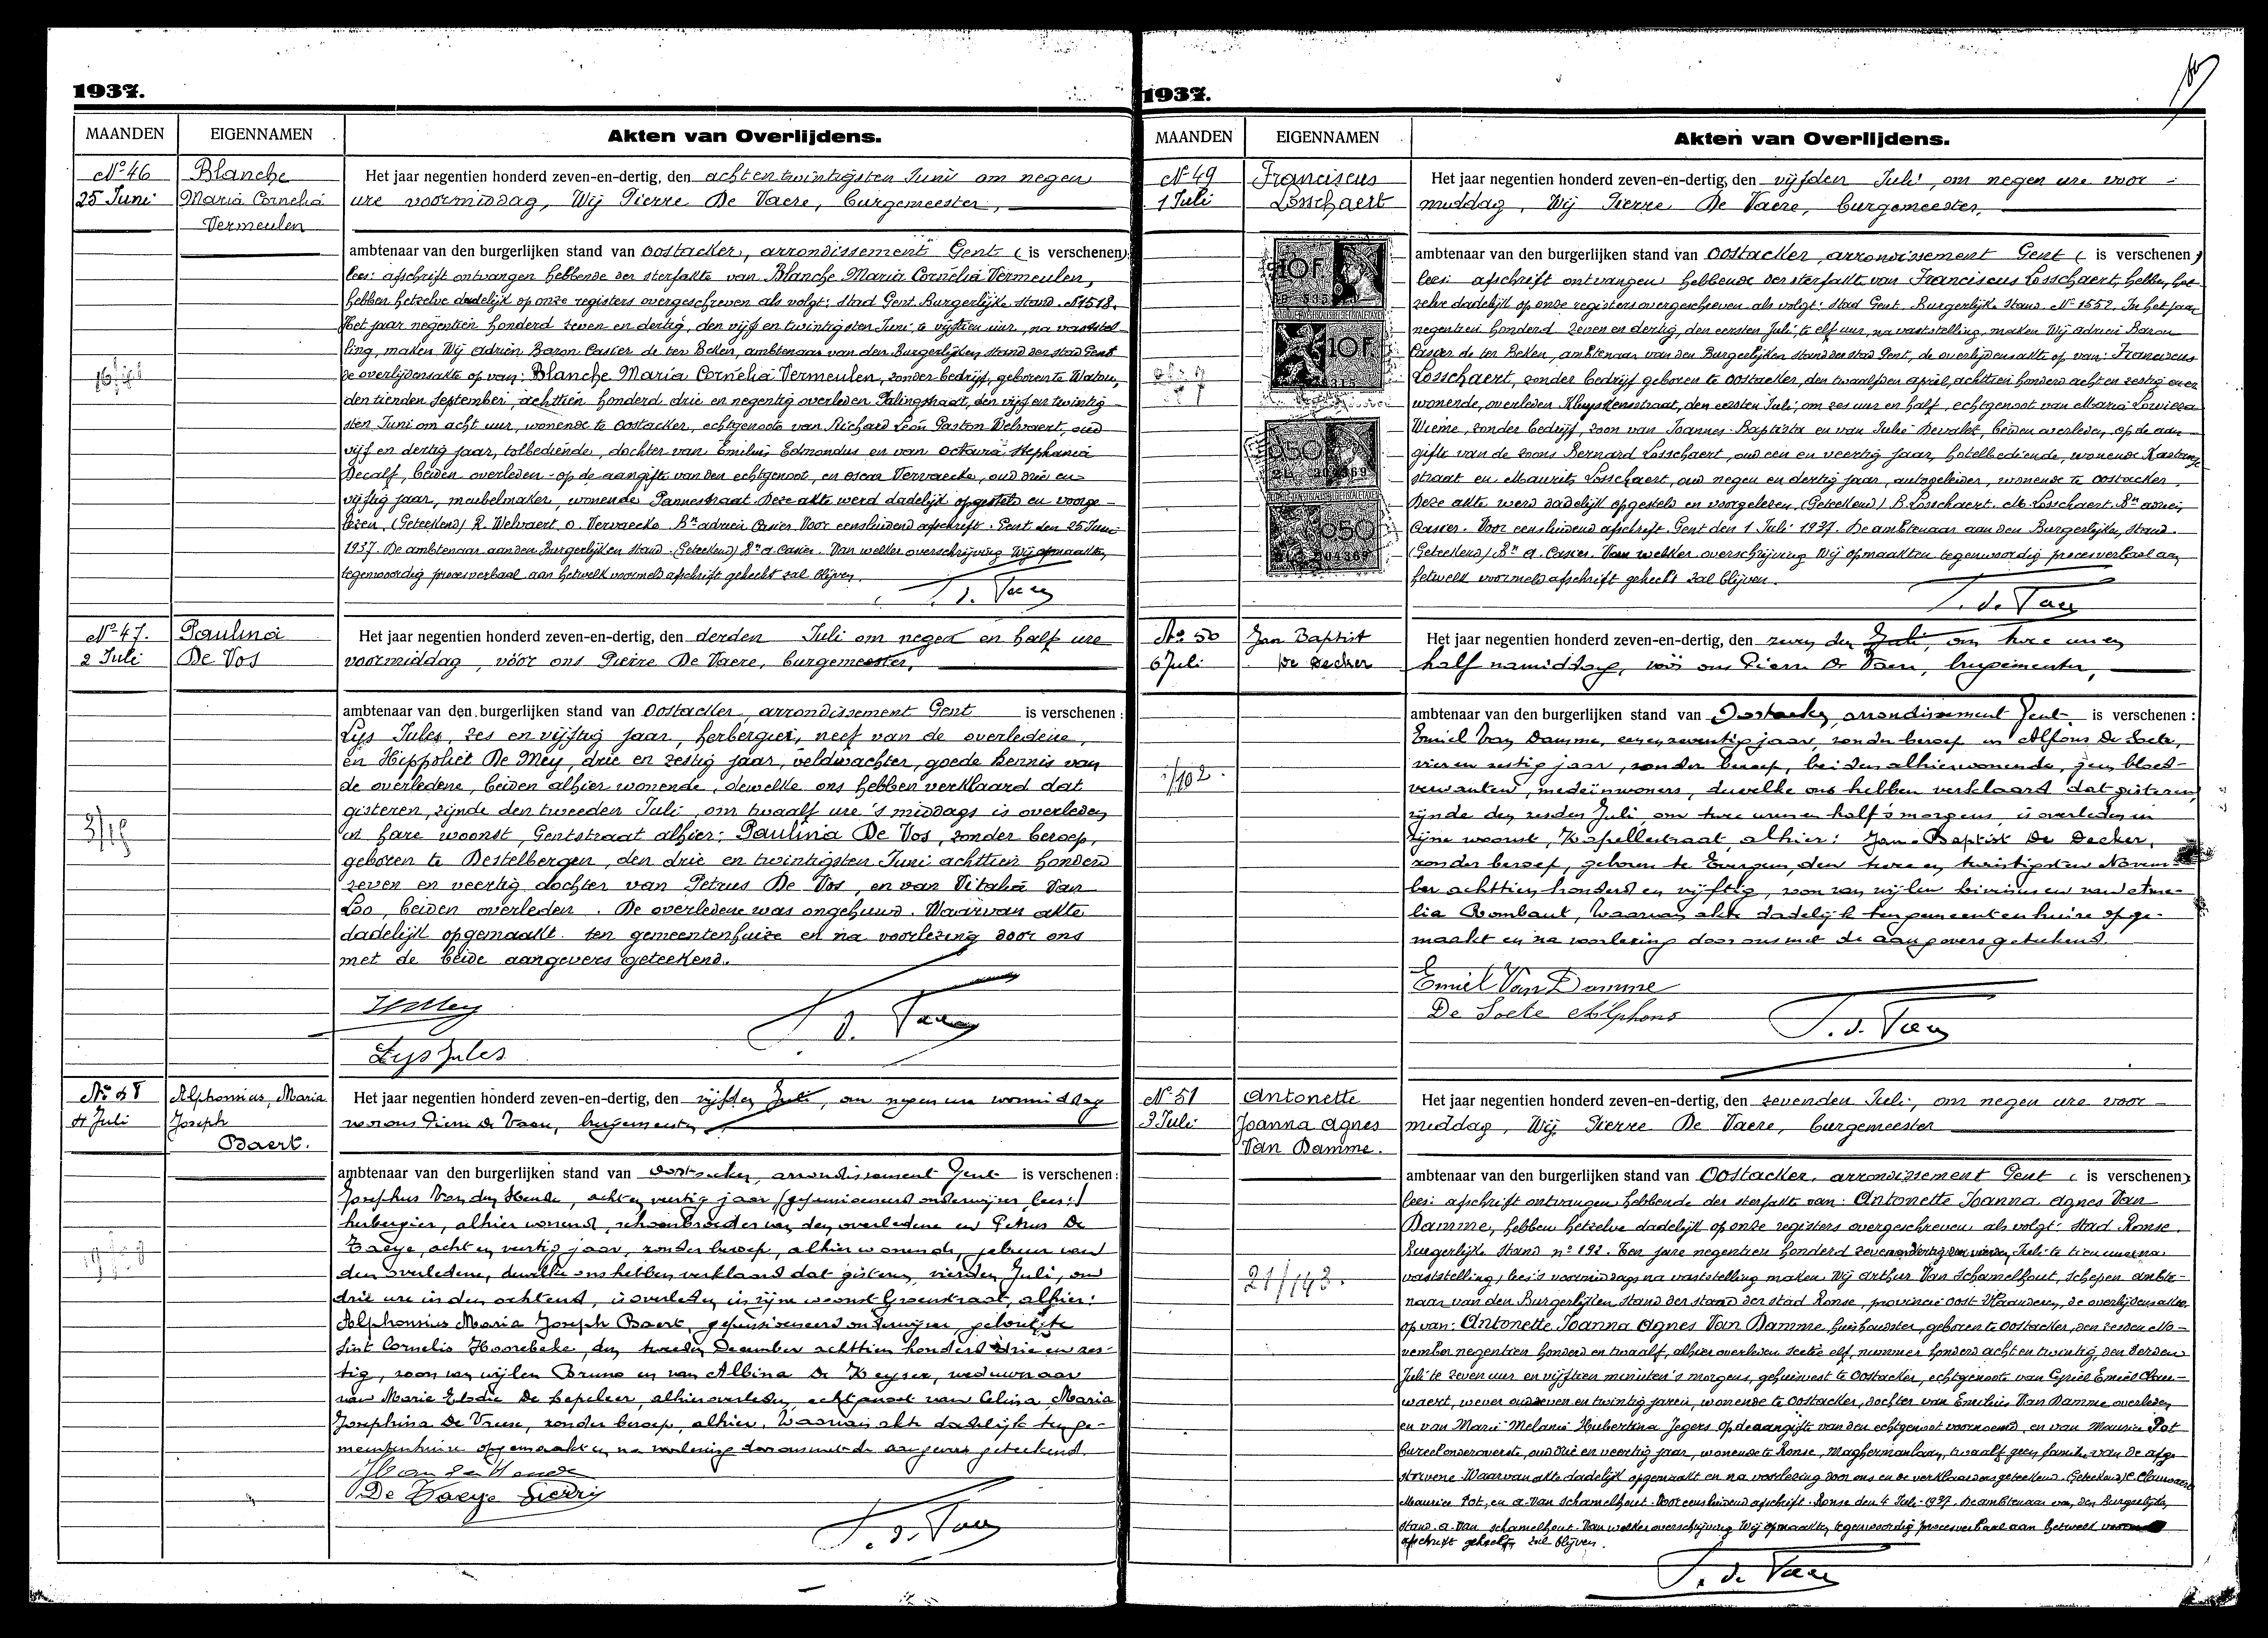 1937.
MAANDEN EIGENNAMEN Akten van Overlijdens.
No 46
25 Juni
Blanche
Maria Cornelia
Vermeulen
Het jaar negentien honderd zeven-en-dertig, den achtentwintigsten Juni om negen
ure voormiddag, Wij Pierre De Vaere, burgemeester,
ambtenaar van den burgerlijken stand van Oostacker, arrondissement Gent (is verschenen)
lees: afschrift ontvangen hebbende der sterfakte van Blanche Maria Cornelia Vermeulen,
hebben hetzelve dadelijk op onze registers overgeschreven als volgt: Stad Gent. Burgerlijke stand. N 1518.
Het jaar negentien honderd zeven en dertig, den vijf en twintigsten Juni te vijftien uur, na vaststel-
ling, maken Wij Adrien Baron Casier de ter Beken, ambtenaar van den Burgerlijken stand der stad Gent
de overlijdensakte op van: Blanche Maria Cornelia Vermeulen, zonder bedrijf, geboren te Watou,
den tienden September, achttien honderd drie en negentig overleden Palingstraat, den vijf en twintig
sten Juni om acht uur, wonende te Oostacker, echtgenoote van Richard Léon Gaston Welvaert, oud
vijf en dertig jaar, tolbediende, dochter van Emilius Edmondus en van Octavia Stephania
Decalf, beiden overleden - op de aangifte van den echtgenoot, en Oscar Vervaecke, oud drie en
vijftig jaar, meubelmaker, wonende Pannestraat. Deze akte werd dadelijk opgesteld en voorge-
lezen. (Geteekend) R. Welvaert, O. Vervaecke. Bn Adrien Casier. Voor eensluidend afschrift. Gent den 25 Juni
1937. De ambtenaar aan den Burgerlijken stand. (Geteekend) Bn A. Casier. Van welker overschrijving Wij opmaakten,
tegenwoordig procesverbaal aan hetwelk voormeld afschrift gehecht zal blijven.
No 47.
2 Juli
Paulina
De Vos
Het jaar negentien honderd zeven-en-dertig, den derden Juli om negen en half ure
voormiddag, vóór ons Pierre De Vaere, burgemeester,
ambtenaar van den burgerlijken stand van Oostacker, arrondissement Gent is verschenen:
Lys Jules, zes en vijftig jaar, herbergier, neef van de overledene,
en Hippoliet De Mey, drie en zestig jaar, veldwachter, goede kennis van
de overledene, beiden alhier wonende, dewelke ons hebben verklaard dat
gisteren, zijnde den tweeden Juli, om twaalf ure 's middags is overleden
in hare woonst, Gentstraat alhier: Paulina De Vos, zonder beroep,
geboren te Destelbergen, den drie en twintigsten Juni achttien honderd
zeven en veertig dochter van Petrus De Vos, en van Vitalia Van
Loo, beiden overleden. De overledene was ongehuwd. Waarvan akte
dadelijk opgemaakt ten gemeentenhuize en na voorlezing door ons
met de beide aangevers geteekend.
Lys Jules
No 48
4 Juli
Alphonsius, Maria
Joseph
Baert.
Het jaar negentien honderd zeven-en-dertig, den vijfden Juli, om negen ure voormiddag
voor ons Pierre De Vaere, burgemeester
ambtenaar van den burgerlijken stand van Oostacker, arrondissement Gent is verschenen:
Josephus Van den Hende, acht en veertig jaar (gepensioeneerd onderwijzer lees:)
herbergier, alhier wonend, schoonbroeder van den overledene en Petrus De
Taeye, acht en veertig jaar, zonder beroep, alhier wonende, gebuur van
den overledene, dewelke ons hebben verklaard dat gisteren, vierden Juli, om
drie ure in den ochtend, is overleden in zijne woonst Groenstraat, alhier:
Alphonsius Maria Joseph Baert, gepensioeneerd onderwijzer, geboren te
Sint Cornelis Hoorebeke, den tweeden December achttien honderd drie en zes-
tig, zoon van wijlen Bruno en van Albina De Keyser, weduwnaar
van Marie Elodie De Depeleer, alhier overleden, echtgenoot van Celina, Maria
Josephina De Vreese, zonder beroep, alhier. Waarvan akte dadelijk ten ge-
meentenhuize opgemaakt en na voorlezing door ons met de aangevers geteekend.
De Taeye Pierre
1937.
MAANDEN EIGENNAMEN Akten van Overlijdens.
No 49
1 Juli
Franciscus
Losschaert
Het jaar negentien honderd zeven-en-dertig, den vijfden Juli, om negen ure voor-
middag, Wij Pierre De Vaere, burgemeester,
ambtenaar van den burgerlijken stand van Oostacker, arrondissement Gent (is verschenen)
lees: afschrift ontvangen hebbende der sterfakte van Franciscus Losschaert, hebben het-
zelve dadelijk op onze registers overgeschreven als volgt: Stad Gent. Burgerlijke Stand. No 1552. In het jaar
negentien honderd zeven en dertig, den eersten Juli te elf uur, na vaststelling, maken Wij Adrien Baron
Casier de ter Beken, ambtenaar van den Burgerlijken stand der stad Gent, de overlijdensakte op van: Franciscus
Losschaert, zonder bedrijf geboren te Oostacker, den twaalfden April, achttien honderd acht en zestig er
wonende, overleden Kluyskensstraat, den eersten Juli, om zes uur en half, echtgenoot van Maria Lowieza
Wieme, zonder bedrijf, zoon van Joannes-Baptista en van Julie Devaldt, beiden overleden, op de aan
gifte van de zoons Bernard Losschaert, oud een en veertig jaar, hotelbediende, wonende
straat en Maurits Losschaert, oud negen en dertig jaar, autogeleider, wonende te Oostacker.
Deze akte werd dadelijk opgesteld en voorgelezen. (Geteekend) B. Losschaert. M. Losschaert. Bn Adrien
Casier. Voor eensluidend afschrift. Gent den 1 Juli 1937. De ambtenaar aan den Burgerlijken Stand.
(Geteekend) Bn A. Casier. Van welker overschrijving Wij opmaakten tegenwoordig procesverbaal aan
hetwelk voormeld afschrift gehecht zal blijven.
No 50
6 Juli
Jan Baptist
De Decker
Het jaar negentien honderd zeven-en-dertig, den zevenden Juli, om twee uren
half namiddag, vóór ons Pierre De Vaere, burgemeester,
ambtenaar van den burgerlijken stand van Oostacker, arrondissement Gent is verschenen:
Emiel Van Damme, een en zeventig jaar, zonder beroep en Alfons De Soete,
vier en zestig jaar, zonder beroep, beiden alhier wonende, geen bloed-
verwanten, medeïnwoners, dewelke ons hebben verklaard dat gisteren,
zijnde den zesden Juli, om twee uren en half 's morgens, is overleden in
zijne woonst, Kapellestraat, alhier: Jan-Baptist De Decker,
zonder beroep, geboren te Evergem, den twee en twintigsten Novem-
ber achttien honderd en vijftig, zoon van wijlen Livinus en van Ame-
lia Rombaut, Waarvan akte dadelijk ten gemeentenhuize opge-
maakt en na voorlezing door ons met de aangevers geteekend.
Emiel Van Damme
De Soete Alphons
No 51
3 Juli
Antonette
Joanna Agnes
Van Damme.
Het jaar negentien honderd zeven-en-dertig, den zevenden Juli, om negen ure voor-
middag, Wij Pierre De Vaere, burgemeester
ambtenaar van den burgerlijken stand van Oostacker, arrondissement Gent (is verschenen)
lees: afschrift ontvangen hebbende der sterfakte van: Antonette Joanna Agnes Van
Damme, hebben hetzelve dadelijk op onze registers overgeschreven als volgt: Stad Ronse.
Burgerlijke Stand no 192. Ten jare negentien honderd zeven en dertig den vierden Juli te tien uur na
vaststelling, lees: 's voormiddags na vaststelling maken Wij Arthur Van Schamelhout, Schepen ambte-
naar van den Burgerlijken stand der stand der stad Ronse, provincie Oost-Vlaanderen, de overlijdensakte
op van: Antonette Joanna Agnes Van Damme, huishoudster, geboren te Oostacker, den zesden No-
vember negentien honderd en twaalf, alhier overleden sectie elf, nummer honderd acht en twintig, den derden
Juli te zeven uur en vijftien minuten 's morgens, gehuisvest te Oostacker, echtgenoote van Cyriel Emiel Clau-
waert, wever oud zeven en twintig jaren, wonende te Oostacker, dochter van Emilius Van Damme overleden
en van Marie Melanie Hubertina Jegers. Op de aangifte van den echtgenoot voornoemd, en van Maurice Pot
bureeloverste, oud drie en veertig jaar, wonende te Ronse, Maghermanlaan, twaalf geen familie van de afge-
storvene. Waarvan akte dadelijk opgemaakt en na voorlezing door ons en de verklaarders geteekend. (Geteekend) C. Clauwaert
Maurice Pot, en A. Van Schamelhout. Voor eensluidend afschrift. Ronse den 4 Juli 1937. De ambtenaar van den Burgerlijken
stand. A. Van Schamelhout. Van welker overschrijving Wij opmaakten tegenwoordig procesverbaal aan hetwelk
afschrift gehecht zal blijven.